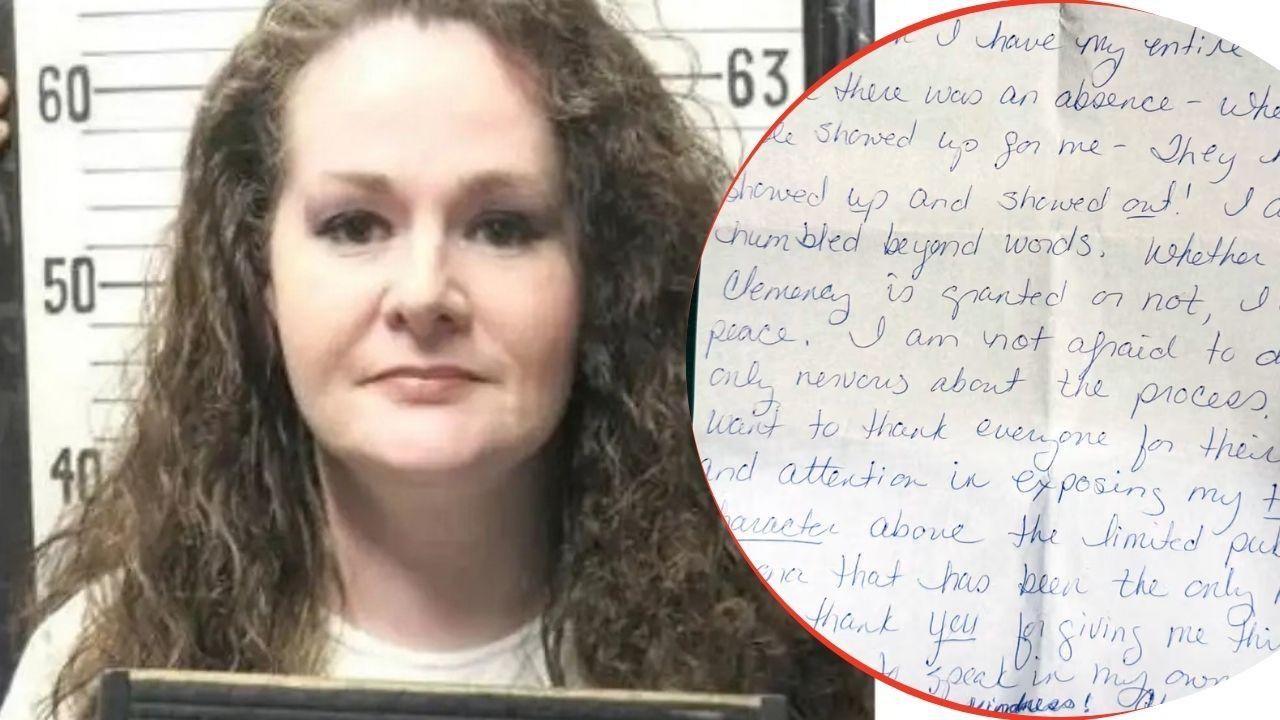 60
50
40
63
I have my entire
there was an absence -
showed up for me - They
showed up and showed out! I
humbled beyond words. Whether
Clemency is granted or not, I
peace. I am not afraid to
only nervous about the process.
want to thank everyone for their
and attention in exposing my
character above the limited
that has been the only
thank you for giving me
speak in my own
kindness!